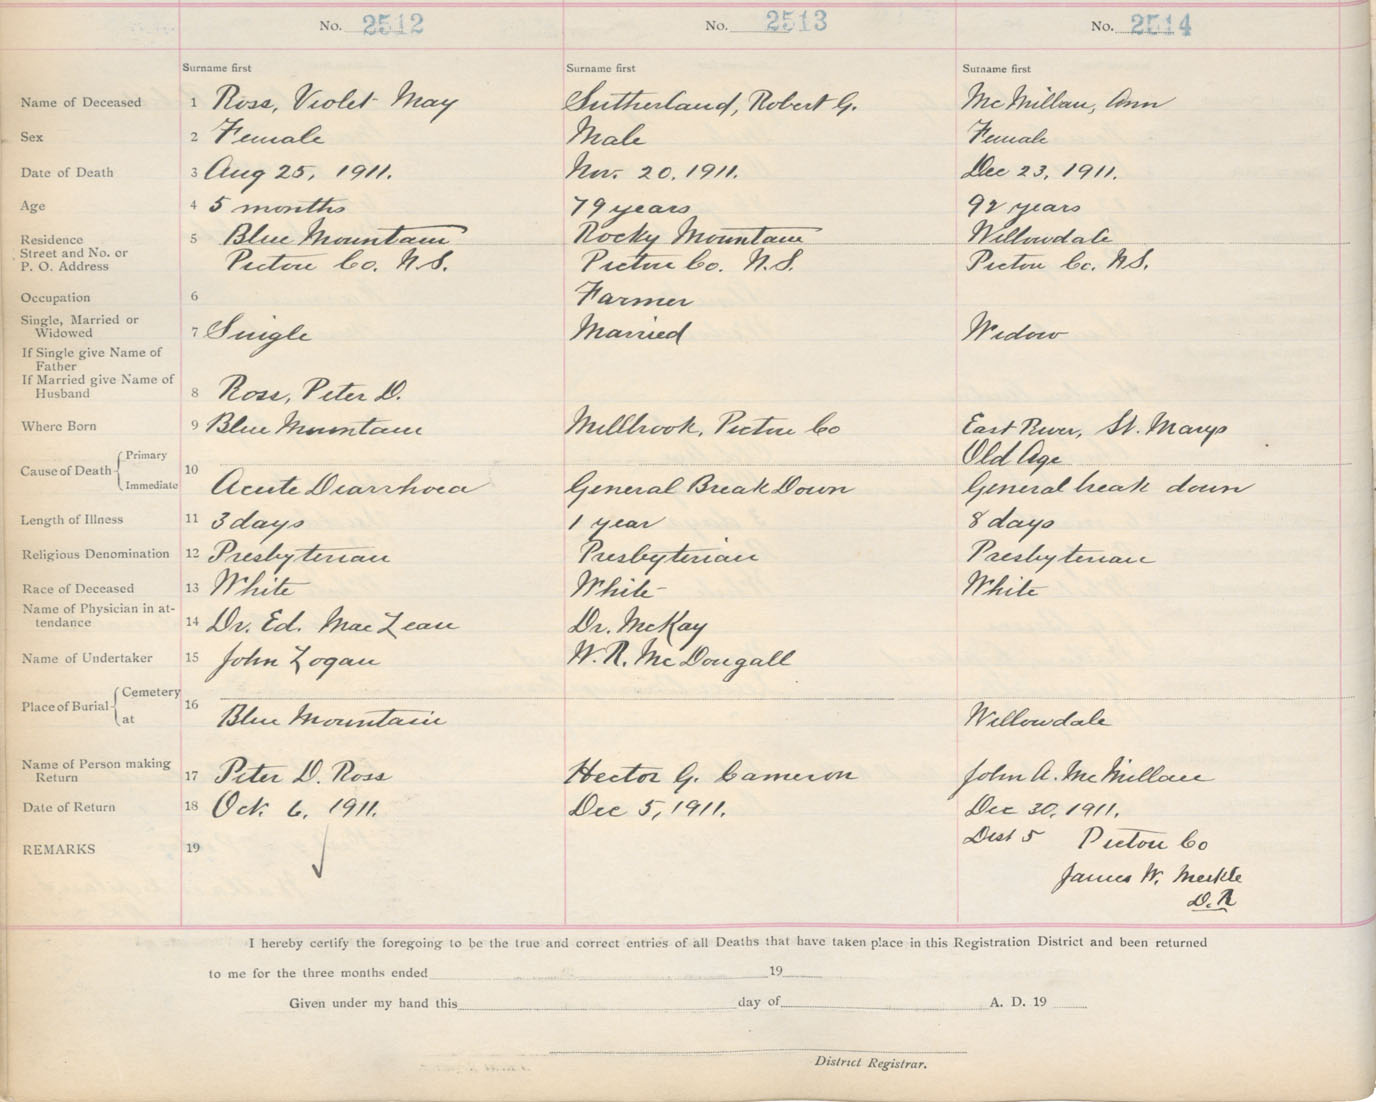 No. 2512 No. 2513 No. 2514
Surname first Surname first Surname first
Name of Deceased 1 Ross, Violet May Sutherland, Robert G. McMillan, Ann
Sex 2 Female Male Female
Date of Death 3 Aug 25, 1911. Nov. 20, 1911. Dec 23, 1911.
Age 4 5 months 79 years 92 years
Residence 5 Blue Mountain Rocky Mountain Willowdale
Street and No. or
P. O. Address Pictou Co. N.S. Pictou Co. N.S. Pictou Co. N.S.
Occupation 6 Farmer
Single, Married or
Widowed 7 Single Married Widow
If Single give Name of
Father
If Married give Name of
Husband 8 Ross, Peter D.
Where Born 9 Blue Mountain Millbrook, Pictou Co East River, St. Marys
Cause of Death Primary 10 Old Age
Immediate Acute Diarrhoea General Break Down General break down
Length of Illness 11 3 days 1 year 8 days
Religious Denomination 12 Presbyterian Presbyterian Presbyterian
Race of Deceased 13 White White White
Name of Physician in at-
tendance 14 Dr. Ed. MacLean Dr. McKay
Name of Undertaker 15 John Logan W. R. McDougall
Place of Burial Cemetery 16
at Blue Mountain Willowdale
Name of Person making
Return 17 Peter D. Ross Hector G. Cameron John A. McMillan
Date of Return 18 Oct. 6, 1911. Dec 5, 1911. Dec 30, 1911.
REMARKS 19 Dist 5 Pictou Co
James W. Meikle
D.R
I hereby certify the foregoing to be the true and correct entries of all Deaths that have taken place in this Registration District and been returned
to me for the three months ended 19
Given under my hand this day of A. D. 19
District Registrar.